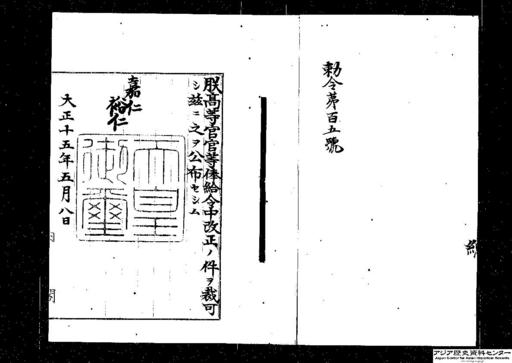 勅令第百五號
朕高等官官等俸給令中改正ノ件ヲ裁可
シ茲ニ之ヲ公布セシム
嘉仁
裕仁
天皇御璽
大正十五年五月八日
内閣
アジア歴史資料センター
Japan Center for Asian Historical Records